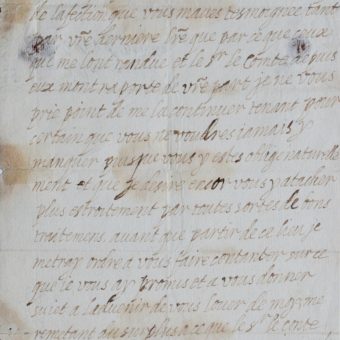 de lafection que vous maves tesmoignee tant
par vre derniere lre que par ce que ceux
que me lont randue et le sr le Conte de puis
eux mont raporte de vre part je ne vous
prie point de me la continuer tenant pour
certain que vous ne voudres jamais y
manquer puis que vous y estes oblige naturelle
ment et que je desire encor vous y atacher
plus estroitement par toutes sortes de bons
traitemens, avant que partir de ce lieu je
metray ordre a vous faire contanter sur ce
que je vous ay promis et a vous donner
sujet a ladvenir de vous louer de moy me
remetant du surplus a ce que le sr le conte